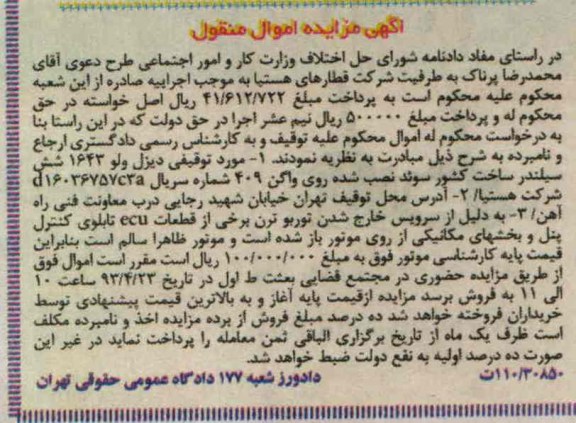 آگهی مزایده اموال منقول
در راستای مفاد دادنامه شورای حل اختلاف وزارت کار و امور اجتماعی طرح دعوی آقای
محمدرضا پرناک به طرفیت شرکت قطارهای هستیا به موجب اجراییه صادره از این شعبه
محکوم علیه محکوم است به پرداخت مبلغ ۴۱/۶۱۲/۷۲۲ ریال اصل خواسته در حق
محکوم له و پرداخت مبلغ ۵۰۰۰۰۰ ریال نیم عشر اجرا در حق دولت که در این راستا بنا
به درخواست محکوم له اموال محکوم علیه توقیف و به کارشناس رسمی دادگستری ارجاع
و نامبرده به شرح ذیل مبادرت به نظریه نمودند. ۱- مورد توقیفی دیزل ولو ۱۶۴۳ شش
سیلندر ساخت کشور سوئد نصب شده روی واگن ۴۰۹ شماره سریال d۱۶۰۳۶۷۵۷c۳a
شرکت هستیا/ ۲- آدرس محل توقیف تهران خیابان شهید رجایی درب معاونت فنی راه
آهن/ ۳- به دلیل از سرویس خارج شدن توربو ترن برخی از قطعات ecu تابلوی کنترل
پنل و بخشهای مکانیکی از روی موتور باز شده است و موتور ظاهرا سالم است بنابراین
قیمت پایه کارشناسی موتور فوق به مبلغ ۱۰۰/۰۰۰/۰۰۰ ریال است مقرر است اموال فوق
از طریق مزایده حضوری در مجتمع قضایی بعثت ط اول در تاریخ ۹۳/۴/۲۳ ساعت ۱۰
الی ۱۱ به فروش برسد مزایده ازقیمت پایه آغاز و به بالاترین قیمت پیشنهادی توسط
خریداران فروخته خواهد شد ده درصد مبلغ فروش از برده مزایده اخذ و نامبرده مکلف
است ظرف یک ماه از تاریخ برگزاری الباقی ثمن معامله را پرداخت نماید در غیر این
صورت ده درصد اولیه به نفع دولت ضبط خواهد شد.
۱۱۰/۳۰۸۵۰ت دادورز شعبه ۱۷۷ دادگاه عمومی حقوقی تهران